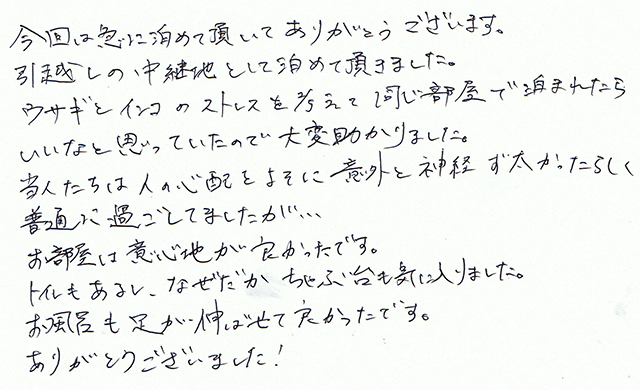 今回は急に泊めて頂いてありがとうございます。
引越しの中継地として泊めて頂きました。
ウサギとインコのストレスを考えて同じ部屋で泊まれたら
いいなと思っていたので大変助かりました。
当人たちは人の心配をよそに意外と神経ず太かったらしく
普通に過ごしてましたが…
お部屋は意心地が良かったです。
トイレもあるし、なぜだかちゃぶ台も気に入りました。
お風呂も足が伸ばせて良かったです。
ありがとうございました!